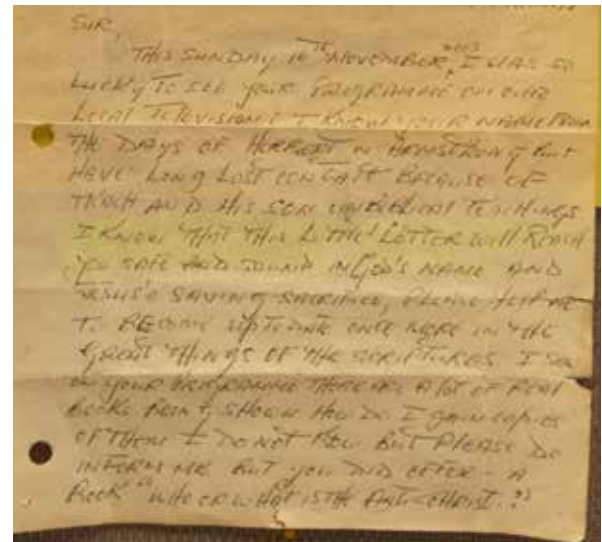 SIR,
THIS SUNDAY 16TH NOVEMBER, 2003 I WAS SO
LUCKY TO SEE YOUR PROGRAMME ON OUR
LOCAL TELEVISION. I KNOW YOUR NAME FROM
THE DAYS OF HERBERT W ARMSTRONG BUT
HAVE LONG LOST CONTACT BECAUSE OF
TKACH AND HIS SON UNBIBLICAL TEACHINGS
I KNOW THAT THIS LITTLE LETTER WILL REACH
YOU SAFE AND SOUND IN GOD'S NAME AND
JESUS'S SAVING SACRIFICE, PLEASE HELP ME
TO BECOME UPTODATE ONCE MORE IN THE
GREAT THINGS OF THE SCRIPTURES. I SAW
IN YOUR PROGRAMME THERE IS A LOT OF REAL
BOOKS BEING SHOWN HOW DO I GAIN COPIES
OF THEM I DO NOT KNOW BUT PLEASE DO
INFORM ME BUT YOU DID OFFER - A
BOOK "WHO OR WHAT IS THE ANTI-CHRIST."